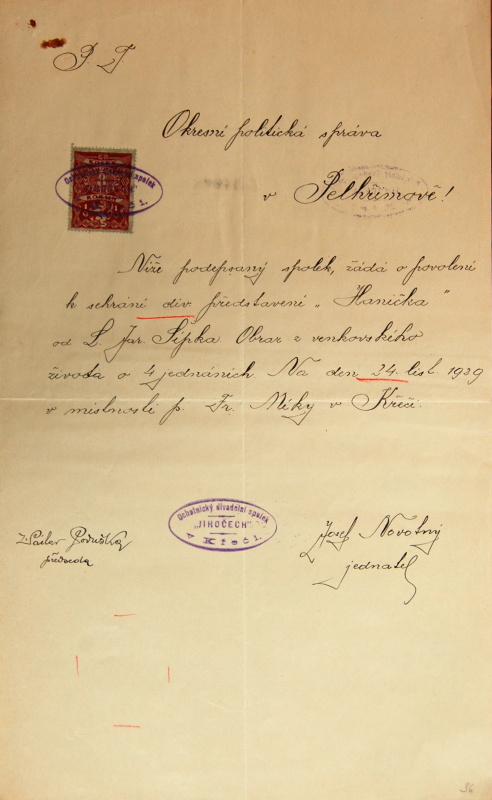 P. T.
Okresní politická správa
v Pelhřimově!
Ochotnický divadelní spolek
Níže podepsaný spolek, žádá o povolení
k sehrání div. představení „Hanička"
od L. Jar. Šípka Obraz z venkovského
života o 4 jednáních. Na den 24. list. 1929
v místnosti p. Fr. Míky v Křeči.
Ochotnický divadelní spolek
„JIHOČECH"
v Křeči.
předseda
Josef Novotný
jednatel